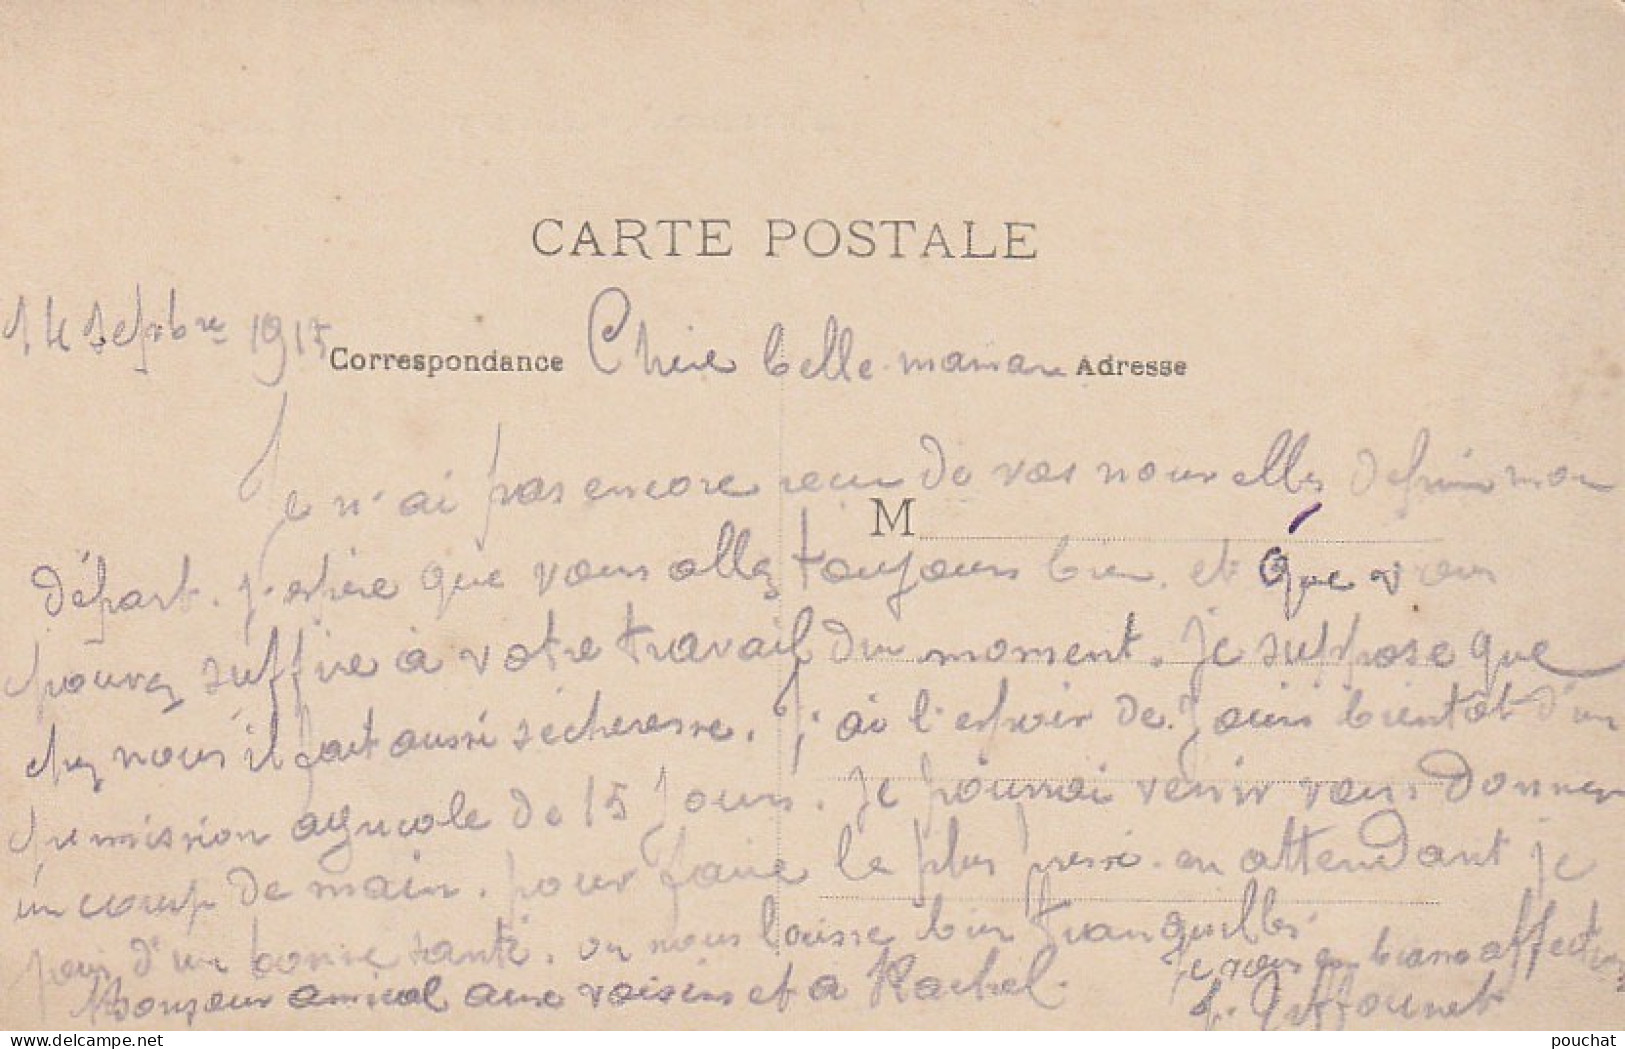 CARTE POSTALE
14 Septbre 1915 Correspondance Chère belle-maman Adresse
Je n'ai pas encore recu de vos nouvelles depuis mon
M
départ. J'espère que vous allez toujours bien. et que vous
pouvez suffire à votre travail du moment. Je suppose que
chez nous il fait aussi sécheresse. J'ai l'espoir de Jouir bientôt d'un
permission agricole de 15 Jours. Je pourrai venir vous donner
un coup de main. pour faire le plus pressé. en attendant je
jouis d'un bonne santé. on nous laisse bien tranquilles.
Je vous embrasse affect
Bonjour amical aux voisins et a Rachel.
pouchat
www.delcampe.net